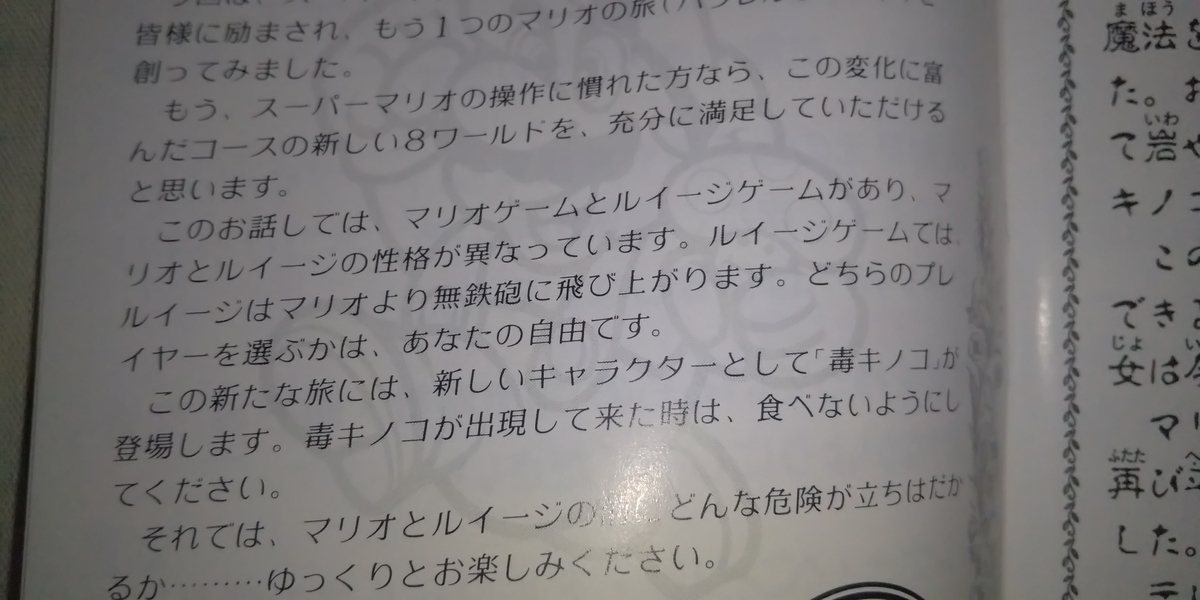 皆様に励まされ、もう1つのマリオの旅(パラレル
創ってみました。
もう、スーパーマリオの操作に慣れた方なら、この変化に富
んだコースの新しい8ワールドを、充分に満足していただける
と思います。
このお話しでは、マリオゲームとルイージゲームがあり、マ
リオとルイージの性格が異なっています。ルイージゲームでは、
ルイージはマリオより無鉄砲に飛び上がります。どちらのプレ
イヤーを選ぶかは、あなたの自由です。
この新たな旅には、新しいキャラクターとして「毒キノコ」が
登場します。毒キノコが出現して来た時は、食べないようにし
てください。
それでは、マリオとルイージの どんな危険が立ちはだか
るか………ゆっくりとお楽しみください。
まほう
魔法
た。お
いわ
て岩や
キノコ
この
でき
じょ
女は
マリ
ふたた
再び
した。